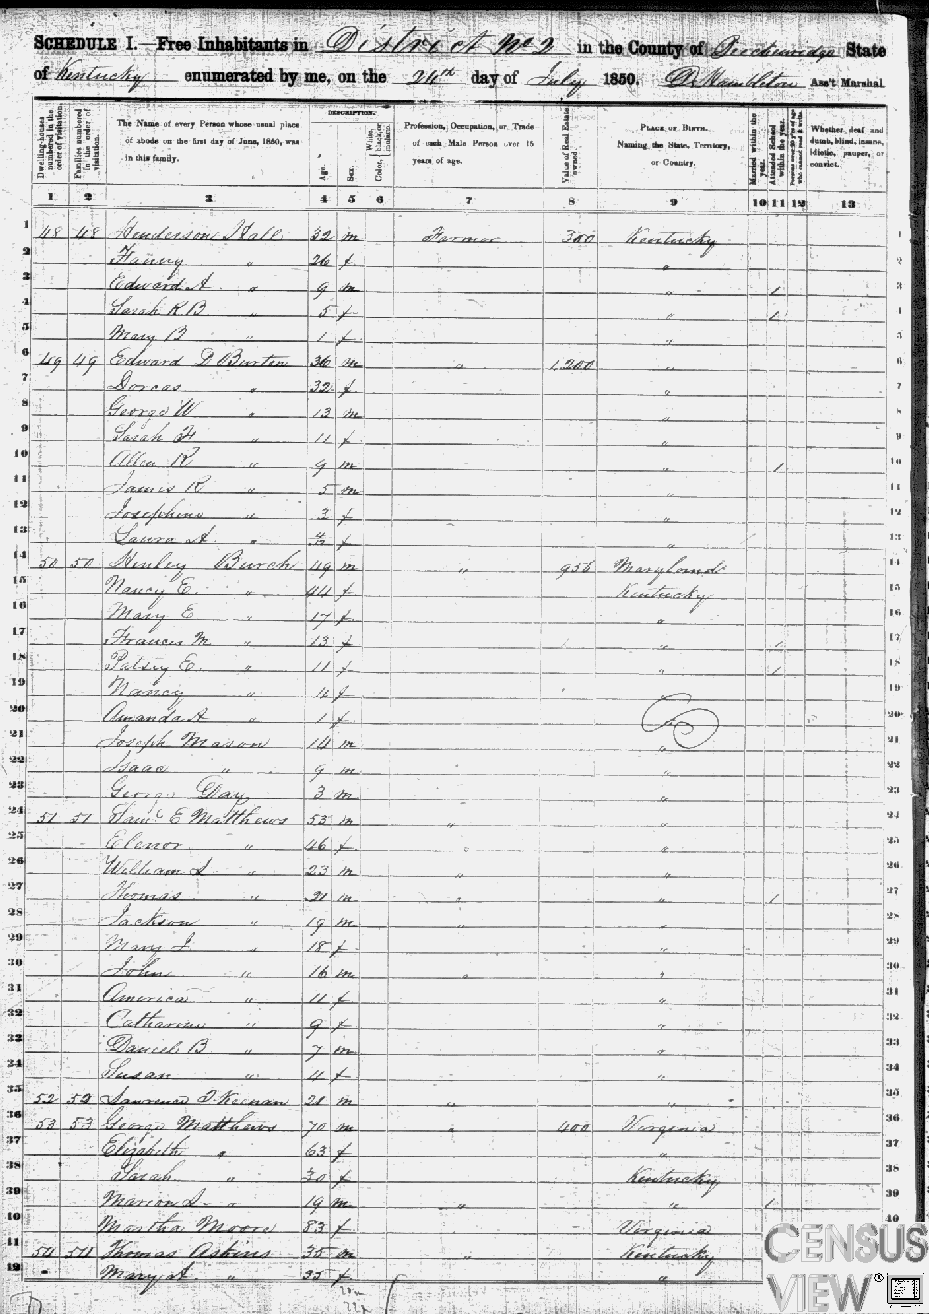 SCHEDULE I.—Free Inhabitants in District No 2 in the County of Breckenridge State
of Kentucky enumerated by me, on the 26th day of July 1850. Ass't Marshal
Dwelling-houses numbered in the order of visitation.
Families numbered in the order of visitation.
The Name of every Person whose usual place of abode on the first day of June, 1850, was in this family.
DESCRIPTION.
Age.
Sex.
Color, White, black, or mulatto.
Profession, Occupation, or Trade of each Male Person over 15 years of age.
Value of Real Estate owned.
PLACE OF BIRTH. Naming the State, Territory, or Country.
Married within the year.
Attended School within the year.
Persons over 20 y'rs of age who cannot read & write.
Whether deaf and dumb, blind, insane, idiotic, pauper, or convict.
1 2 3 4 5 6 7 8 9 10 11 12 13
1 48 48 Henderson Hall 32 m Farmer 300 Kentucky 1
2 Fanny " 26 f " 2
3 Edward A " 9 m " 1 3
4 Sarah R B " 5 f " 1 4
5 Mary B " 1 f " 5
6 49 49 Edward D Burten 36 m " 1,200 " 6
7 Dorcas " 32 f " 7
8 George W " 13 m " 8
9 Sarah " 11 f " 9
10 Allen R " 9 m " 1 10
11 James R " 5 m " 11
12 Josephine " 3 f " 12
13 Laura A. " f " 13
14 50 50 Henley Burch 49 m " 956 Maryland 14
15 Nancy E. " 44 f Kentucky 15
16 Mary E " 17 f " 16
17 Francis M " 13 f " 1 17
18 Patsey E. " 11 f " 1 18
19 Nancy " f " 19
20 Amanda A " 1 f " 20
21 Joseph Mason 14 m " 21
22 Isaac " 9 m " 22
23 George Day 3 m " 23
24 51 51 Saml E Matthews 53 m " " 24
25 Elenor " 46 f " " 25
26 William S " 23 m " " 26
27 Thomas " 21 m " " 1 27
28 Jackson " 19 m " " 28
29 Mary J " 18 f " 29
30 John " 16 m " " 30
31 America " 11 f " 31
32 Catharine " 9 f " 32
33 Daniel B " 7 m " 33
34 Susan " 4 f " 34
35 52 52 Lawrence Keenan 21 m " " 35
36 53 53 George Matthews 70 m " 400 Virginia 36
37 Elizabeth " 63 f " 37
38 Sarah " 30 f Kentucky 38
39 Marion S " 19 m " " 1 39
40 Martha Moore 83 f Virginia 40
41 54 54 Thomas Askins 35 m " Kentucky
42 Mary A. " 35 f "
CENSUS
VIEW®